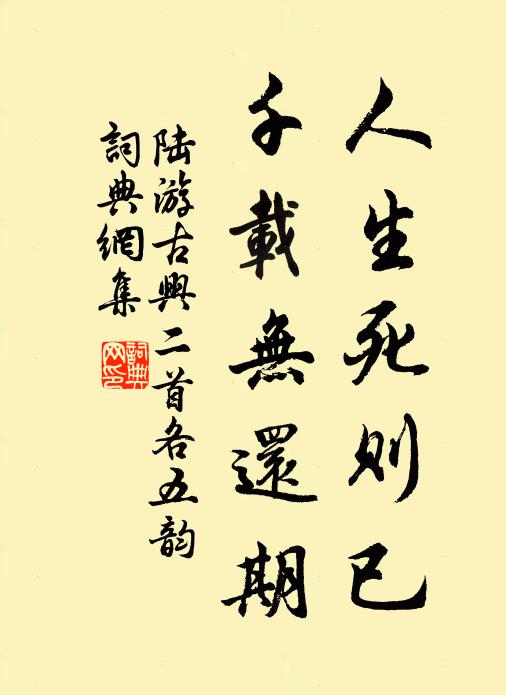 人生死則已
千載無還期
陆游古興二首各五韵
詞典網集
詞典網印